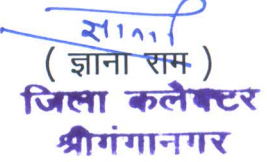 ( ज्ञाना राम )
जिला कलेक्टर
श्रीगंगानगर